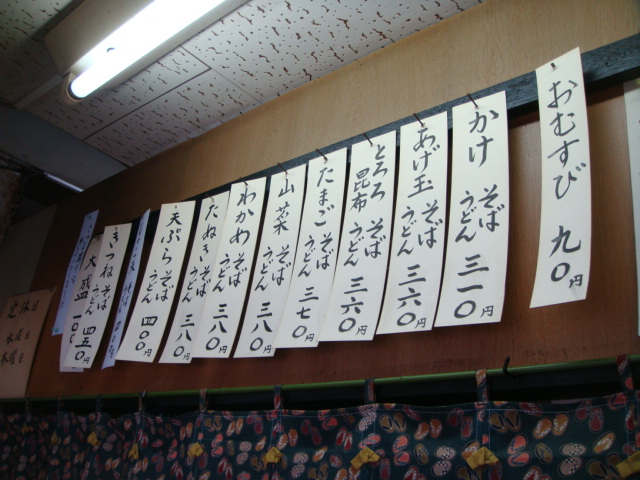 おむすび 九〇円
かけ そば うどん 三一〇円
あげ玉 そば うどん 三六〇円
とろろ昆布 そば うどん 三六〇円
たまご そば うどん 三七〇円
山菜 そば うどん 三八〇円
わかめ そば うどん 三八〇円
たぬき そば うどん 三八〇円
天ぷら そば うどん 四〇〇円
きつね そば うどん 四五〇円
大盛 一〇〇円
定休日
水曜日
木曜日